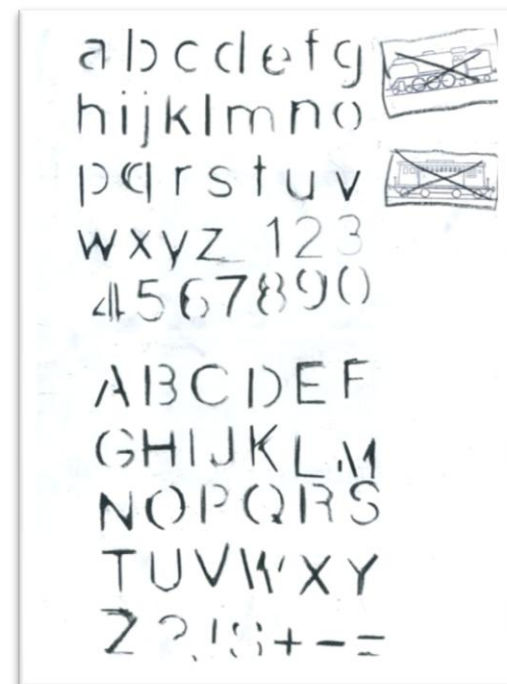 abcdefg
hijklmno
pqrstuv
wxyz 123
4567890
ABCDEF
GHIJKLM
NOPQRS
TUVWXY
Z?!$+-=